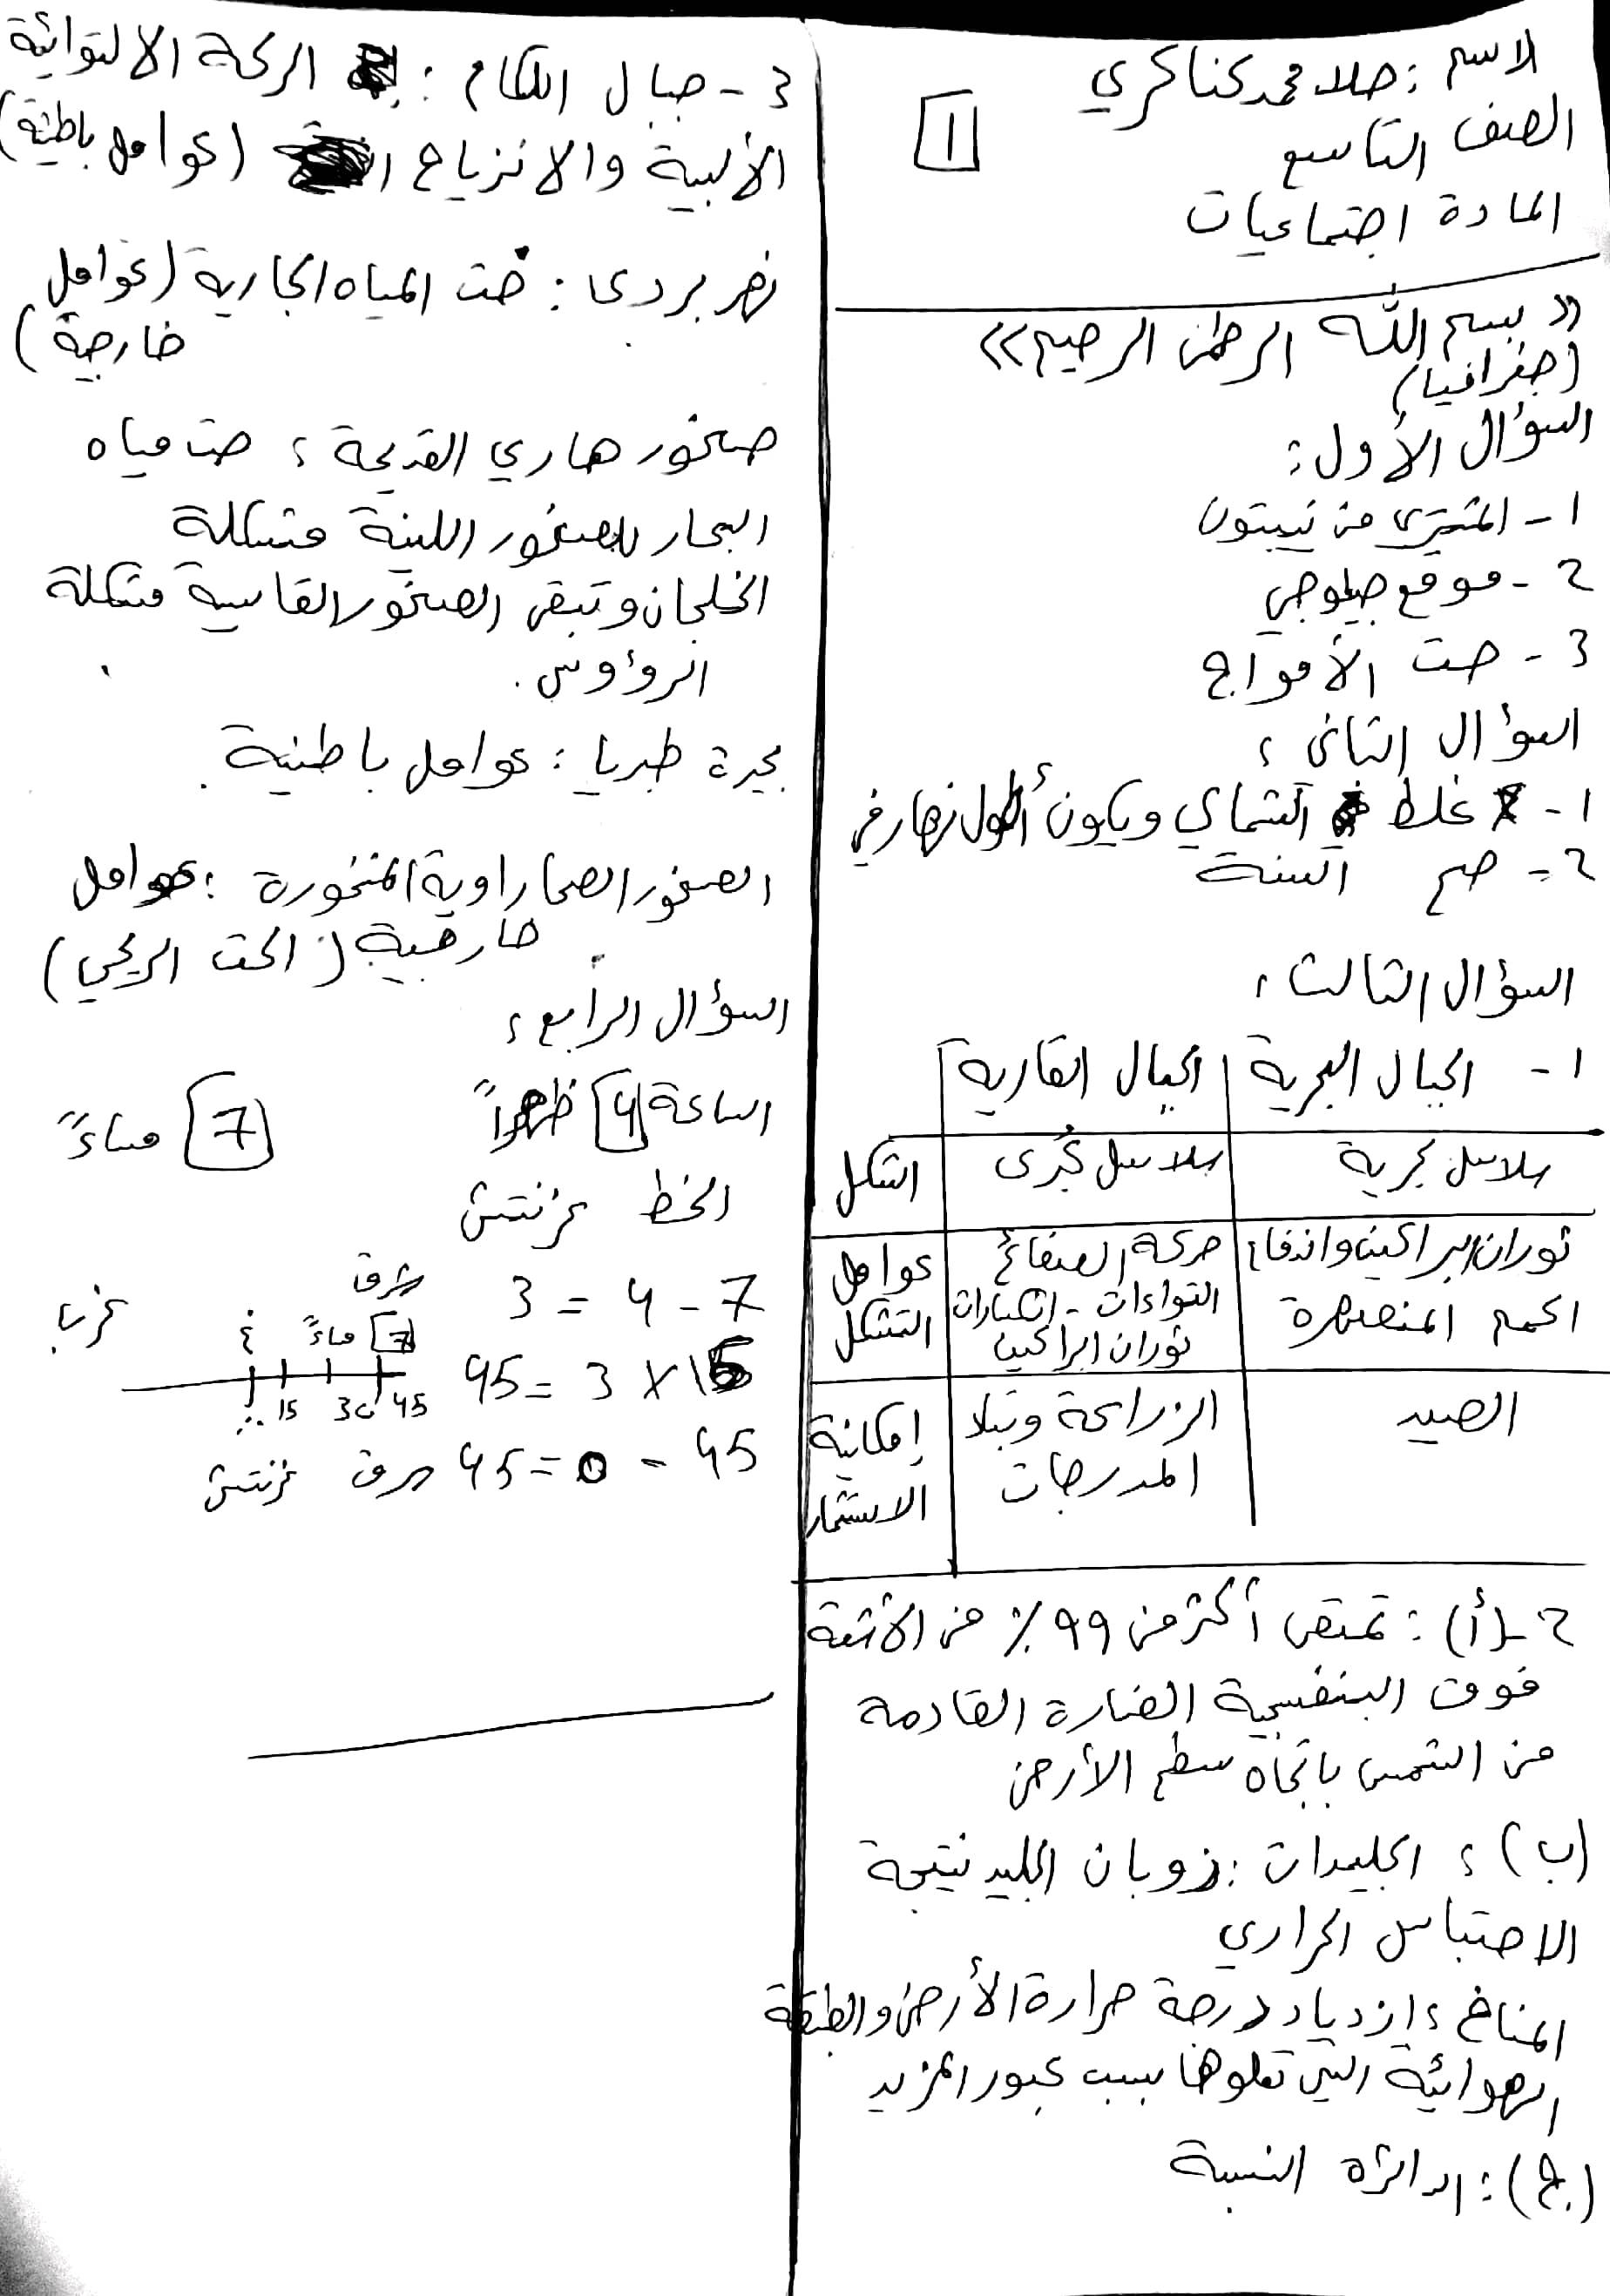 الاسم : حلا محمد كناكري
الصف التاسع
المادة اجتماعيات
1
« بسم الله الرحمن الرحيم »
(جغرافيا)
السؤال الأول :
1 - المشتري من نيبتون
2 - موقع جيلوجي
3 - حت الأمواج
السؤال الثاني :
1 - غلط الشمالي ويكون أطول نهار في
السنة
2 - صح
السؤال الثالث :
1 - الجبال البحرية الجبال القارية
سلاسل بحرية سلاسل كبرى الشكل
ثوران البراكين واندفاع حركة الصفائح عوامل
الحمم المنصهرة التواءات - انكسارات التشكل
ثوران البراكين
الصيد الزراعة وتبلا إمكانية
المدرجات الاستثمار
2 - (أ) : تمتص أكثر من 99 % من الأشعة
فوق البنفسجية الضارة القادمة
من الشمس باتجاه سطح الأرض
(ب) : الجليدات : زوبان الجليد نتيجة
الاحتباس الحراري
المناخ : ازدياد درجة حرارة الأرض والطبقة
الهوائية التي تعلوها بسبب عبور المزيد
(ج) : الدائرة النسبية
3 - جبال اللكام : الركة الالتوائية
الألبية والانزياح (عوامل باطنية)
نهر بردى : حت المياه الجارية (عوامل
خارجية)
صخور هاري القديمة : حت مياه
البحار للصخور اللينة مشكلة
الخلجان وتبقى الصخور القاسية مشكلة
الرؤوس .
بحيرة طبريا : عوامل باطنية .
الصخور الصحاراوية المنخورة : عوامل
خارجية (الحت الريحي)
السؤال الرابع :
الساعة 4 ظهراً 7 مساءً
الخط غرنتش
7 - 4 = 3
شرق غرب
7 مساءً 4
15 × 3 = 45
45 30 15 0
45 - 0 = 45 شرق غرنتش